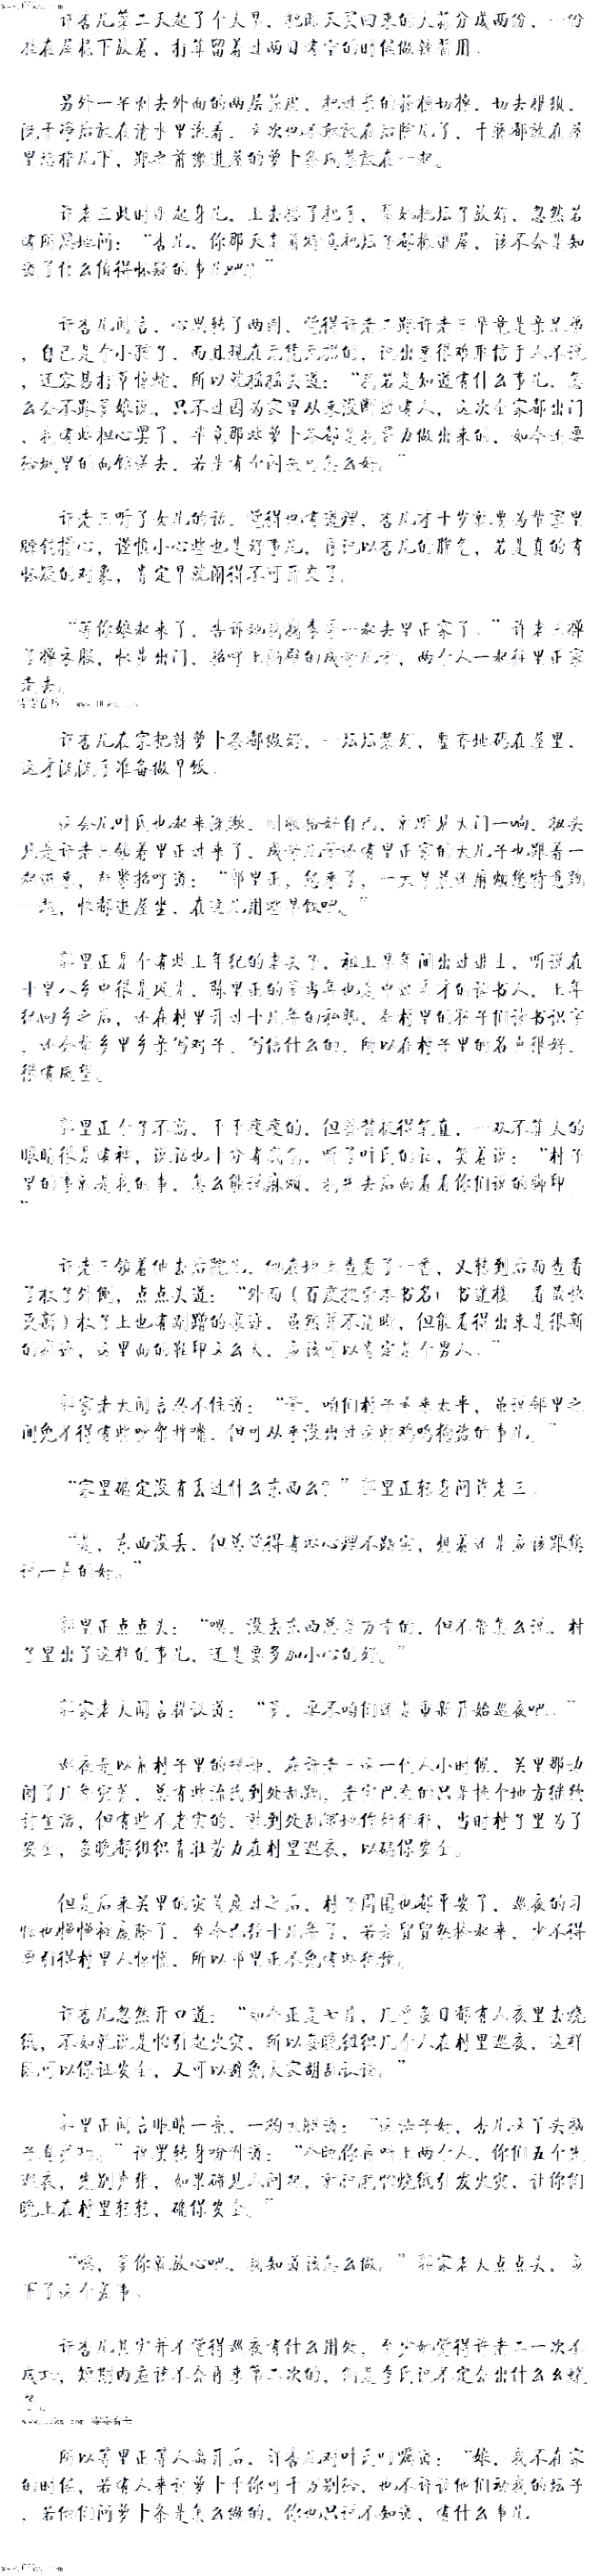 许杏儿第二天起了个大早，把昨天买回来的大蒜分成两份，一份
挂在屋檐下放着，打算留着过两日有空的时候做辣酱用。
另外一半剥去外面的两层
洗干净后放在清水里泡着，这次也不敢放在后院儿了，干脆都放在屋
里墙根儿下，跟之前搬进屋的萝卜条咸菜放在一起。
许老三此时刚起身儿，上去搭了把手，帮她把坛子放好，忽然若
有所思地问：“杏儿，你那天走前特意把坛子都搬进屋，该不会是知
道了什么值得怀疑的事儿吧？”
许杏儿闻言，心里转了两圈，觉得许老二跟许老三毕竟是亲兄弟
，自己是个小孩子，而且现在无凭无据的，说出来很难取信于人不说
，还容易打草惊蛇，所以就摇摇头道：“我若是知道有什么事儿，怎
么会不跟爹娘说，只不过因为家里从来没断过人，这次全家都出门
，我有些担心罢了，毕竟那些萝卜条都是我努力做出来的，如今还要
给城里的面馆送去，若是有个闪失可怎么好。”
许老三听了女儿的话，觉得也有道理，杏儿才十岁就要为带家里
赚钱操心，谨慎小心些也是好事儿，再说以杏儿的脾气，若是真的有
怀疑的对象，肯定早就闹得不可开交了。
“等你娘起来了，告诉她我跟李哥一起去里正家了。”许老三掸
了掸衣服，快步出门，招呼上隔壁的成哥儿，两个人一起往里正家
走去。
许杏儿在家把拌萝卜条都做好，一坛坛装好，整齐地码在屋里，
这才洗洗手准备做早饭。
这会儿叶氏也起来洗漱，刚收拾好自己，就听见大门一响，抬头
见是许老三领着里正过来了，成哥儿还有里正家的大儿子也跟着一
起进来，赶紧招呼道：“郭里正，您来了，一大早就还麻烦您特意跑
一趟，快都进屋坐，在这儿用些早饭吧。”
郭里正是个有些上年纪的老头子，祖上早年间出过进士，听说在
十里八乡中很是风光，郭里正的爹当年也是中过秀才的读书人，上年
纪回乡之后，还在村里开过十几年的私塾，教村里的孩子们读书识字
，还会帮乡里乡亲写对子、写信什么的，所以在村子里的名声很好，
很有威望。
郭里正个子不高，干干瘦瘦的，但脊背挺得笔直，一双不算大的
眼睛很是有神，说话也十分有底气，听了叶氏的话，笑着说：“村子
里的事就是我的事，怎么能说麻烦，我先去后面看看你们说的脚印
”
许老三领着他去后院儿，他在地上查看了一番，又转到后面查看
了杖子外侧，点点头道：“外面（百度搜索本书名+书迷楼 看最快
更新）杖子上也有剐蹭的痕迹，虽然并不清晰，但能看得出来是很新
的痕迹，这里面的鞋印这么大，应该可以肯定是个男人。”
郭家老大闻言忍不住道：“爹，咱们村子素来太平，虽说邻里之
间免不得有些吵架拌嘴，但可从来没出过这些鸡鸣狗盗的事儿。”
“家里确定没有丢过什么东西么？”郭里正转身问许老三。
“是，东西没丢，但总觉得有些心理不踏实，想着还是应该跟您
说一声的好。”
郭里正点点头：“嗯，没丢东西总是万幸的，但不管怎么说，村
子里出了这样的事儿，还是要多加小心的好。”
郭家老大闻言提议道：“爹，要不咱们还是重新开始巡夜吧。”
巡夜是以前村子里的规矩，在许老三这一代人小时候，关里那边
闹了几年灾荒，总有些流民到处乱跑，老实巴交的只是换个地方继续
讨生活，但有些不老实的，就到处乱窜地作奸犯科，当时村子里为了
安全，每晚都组织青壮劳力在村里巡夜，以确保安全。
但是后来关里的灾荒度过之后，村子周围也都平安了，巡夜的习
惯也慢慢被废除了，至今已经十几年了，若是贸贸然捡起来，少不得
要引得村里人惊慌，所以郭里正不免有些犹豫。
许杏儿忽然开口道：“如今正是七月，几乎每日都有人夜里去烧
纸，不如就说是怕引起火灾，所以每晚组织几个人在村里巡夜，这样
既可以保证安全，又可以避免大家胡乱议论。”
郭里正闻言眼睛一亮，一拍大腿道：“这法子好，杏儿这丫头脑
子真灵巧。”说罢转身吩咐道：“今晚你再叫上两个人，你们五个先
巡夜，先别声张，如果碰见人问起，就说我怕烧纸引发火灾，让你们
晚上在村里转转，确保安全。”
“嗯，爹你就放心吧，我知道该怎么做。”郭家老大点点头，应
下了这个差事。
许杏儿其实并不觉得巡夜有什么用处，至少她觉得许老二一次不
成功，短期内应该不会再来第二次的，倒是李氏说不定会出什么幺蛾
子。
所以等里正等人离开后，许杏儿对叶氏叮嘱道：“娘，我不在家
的时候，若有人来讨萝卜干你可千万别给，也不许让他们动我的坛子
，若他们问萝卜条是怎么做的，你也只说不知道，有什么事儿